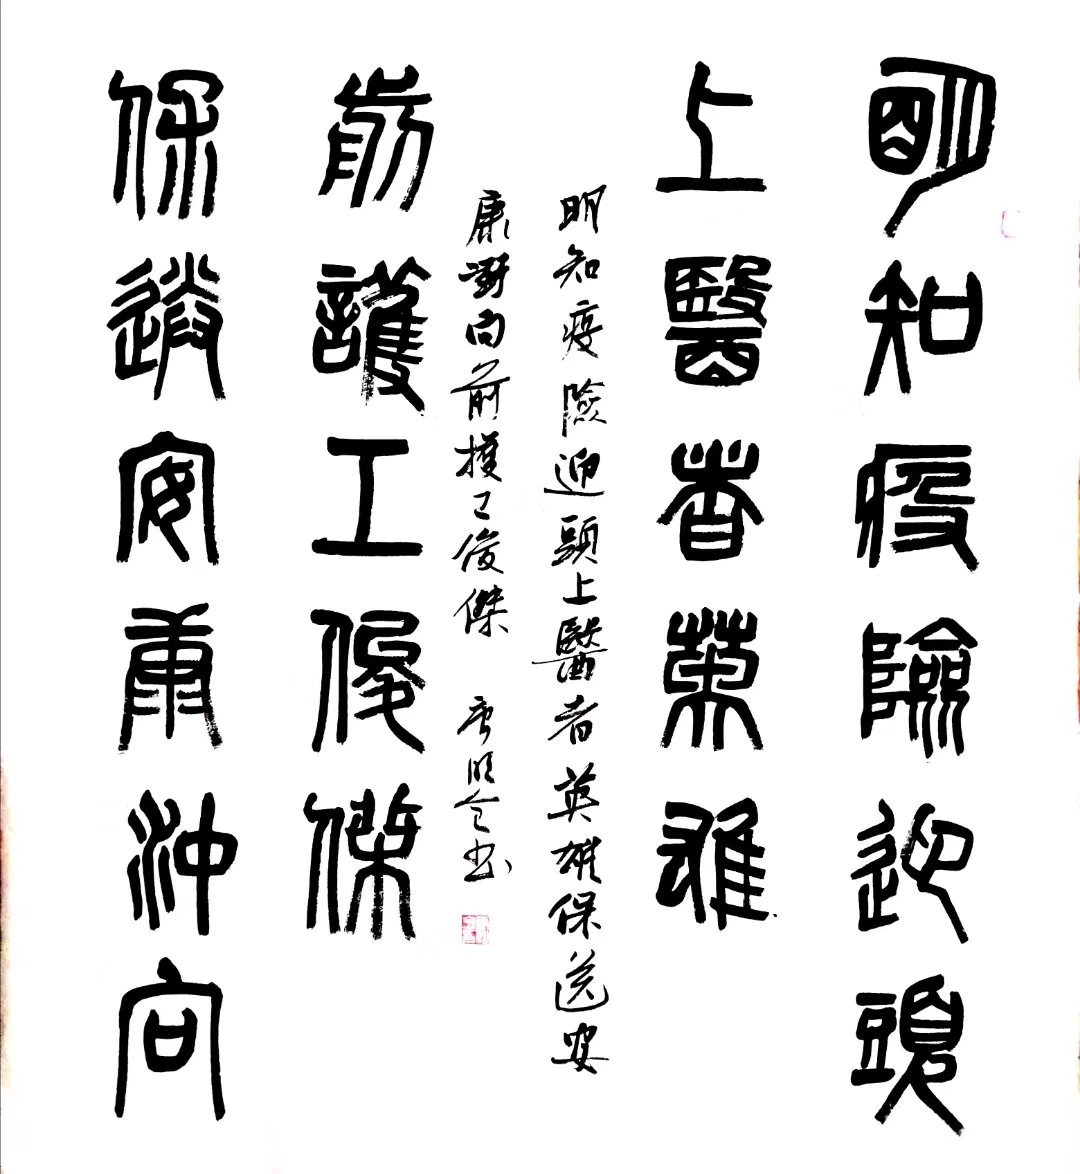 明知疫險迎頭
上醫者英雄
保送安康沖向
前護工俊傑
明知疫險迎頭上醫者英雄保送安
康衝向前護工俊傑 唐明书